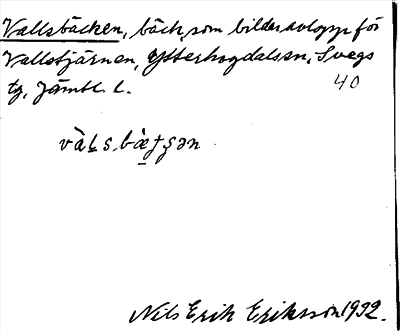 Vallsbäcken, bäck, som bildar avlopp för
Vallstjärnen, Ytterhogdalssn, Svegs
tg, Jämtl. l. 40
Nils Erik Eriksson 1932.